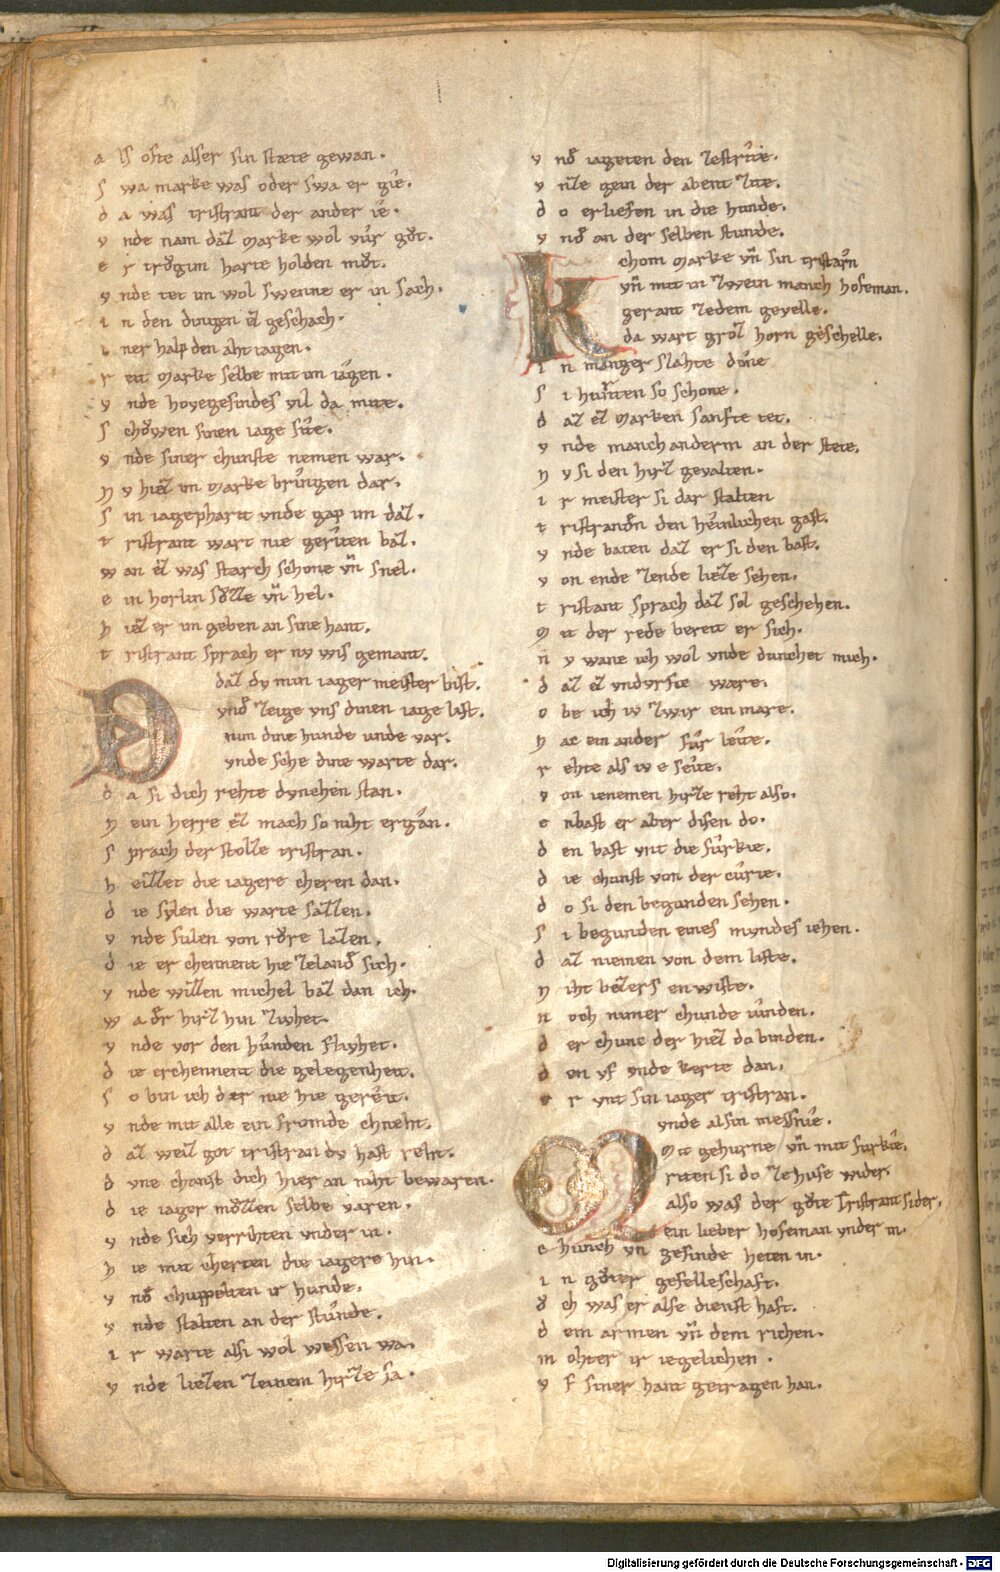 a ls ofte alser sin stæte gewan.
s wa marke waſ oder swa er gie.
d a waſ triſtrant der ander ie.
v nde nam daz Marke wol vůr gůt.
e r trůgim harte holden můt.
v nde tet im wol swenne er in sach.
i n den dingen ez geschach.
i ner halp den aht tagen.
r eit Marke selbe mit im iagen.
v nde hovegesindes vil da mite.
s chǒwen sinen iage site.
v nde siner chunſte nemen war.
N v hiez im Marke bringen dar.
S in iagepharit vnde gap im daz.
t riſtrant wart nie geriten baz.
w an ez was starch schone vn̄ snel.
e in hornlin sůzze vn̄ hel.
h iez er im geben an sine hant.
t riſtrant sprach er nv wis gemant.
D daz dv min iager meiſter biſt.
vnd zeige vns dinen iage liſt.
nim dine hunde unde var.
vnde sche dine warte dar.
d a si dich rehte dvnchen stan.
N ein herre ez mach so niht ergan.
s prach der stolze triſtran.
h eizzet die iagere cheren dan.
d ie svlen die warte sazzen.
v nde sulen von růre lazen.
d ie er chennent hie zeland sich.
v nde wizzen michel baz dan ich.
w a dr hirz hin zivhet.
v nde vor den hunden flivhet.
d ie erchennent die gelegenheit.
s o bin ich d er nie hie gereit.
v nde mit alle ein fromde chneht.
d az weiz got triſtran dv haſt reht.
d vne chanst dich hier an niht bewaren.
d ie iager můzzen selbe varen.
v nde sich verrihten vnder in.
h ie mit cherten die iagere hin.
v nd chuppelten ir hunde.
v nde stalten an der stunde.
i r warte alsi wol wessen wa.
v nde liezen zeinem hirze sa.
v nd iageten den zestrite.
v nze gein der abent zite.
d o erliefen in die hunde.
v nd an der selben stunde.
K chom Marke vn̄ sin triſtran
vn̄ mit in zwein manch hofeman.
gerant zedem gevelle.
da wart groz horn geschelle.
i n manger slahte done
s i hurnten so schone.
d az ez Marken sanfte tet.
v nde manch anderm an der stete.
N v si den hirz gevalten.
i r meiſter si dar stalten
t riſtranden den heimlichen gaſt.
v nde baten daz er si den baſt.
v on ende zende lieze sehen.
t riſtant sprach daz sol geschehen.
M it der rede bereit er sich.
n v wane ich wol vnde dunchet mich.
d az ez vndvrfte wære.
o be ich iv zwir ein mare.
N ac ein ander fůr leite.
r ehte als iv e seite.
v on ienemen hirze reht also.
e nbaſt er aber disen do.
d en baſt vnt die furkie.
d ie chunst von der curie.
d o si den begunden sehen.
s i begunden eines mvndes iehen.
d az niemen von dem liſte.
N iht bezzers en wiſte.
n och nimer chunde uinden.
d er chunc der hiez do binden.
d en vf vnde kerte dan.
e r vnt sin iager triſtran.
vnde alsin messnie.
M it gehurne vn̄ mit furkie.
riten si do ze huse wider.
also was der gůte Triſtrant sider.
ein lieber hofeman vnder in.
c hunch vn̄ gesinde heten in.
i n gůter geſelleſchaft.
ǒ ch was er alse dienſt haft.
d em armen vn̄ dem richen.
m ohter ir iegelichen .
v f siner hant getragen han.
Digitalisierung gefördert durch die Deutsche Forschungsgemeinschaft - DFG